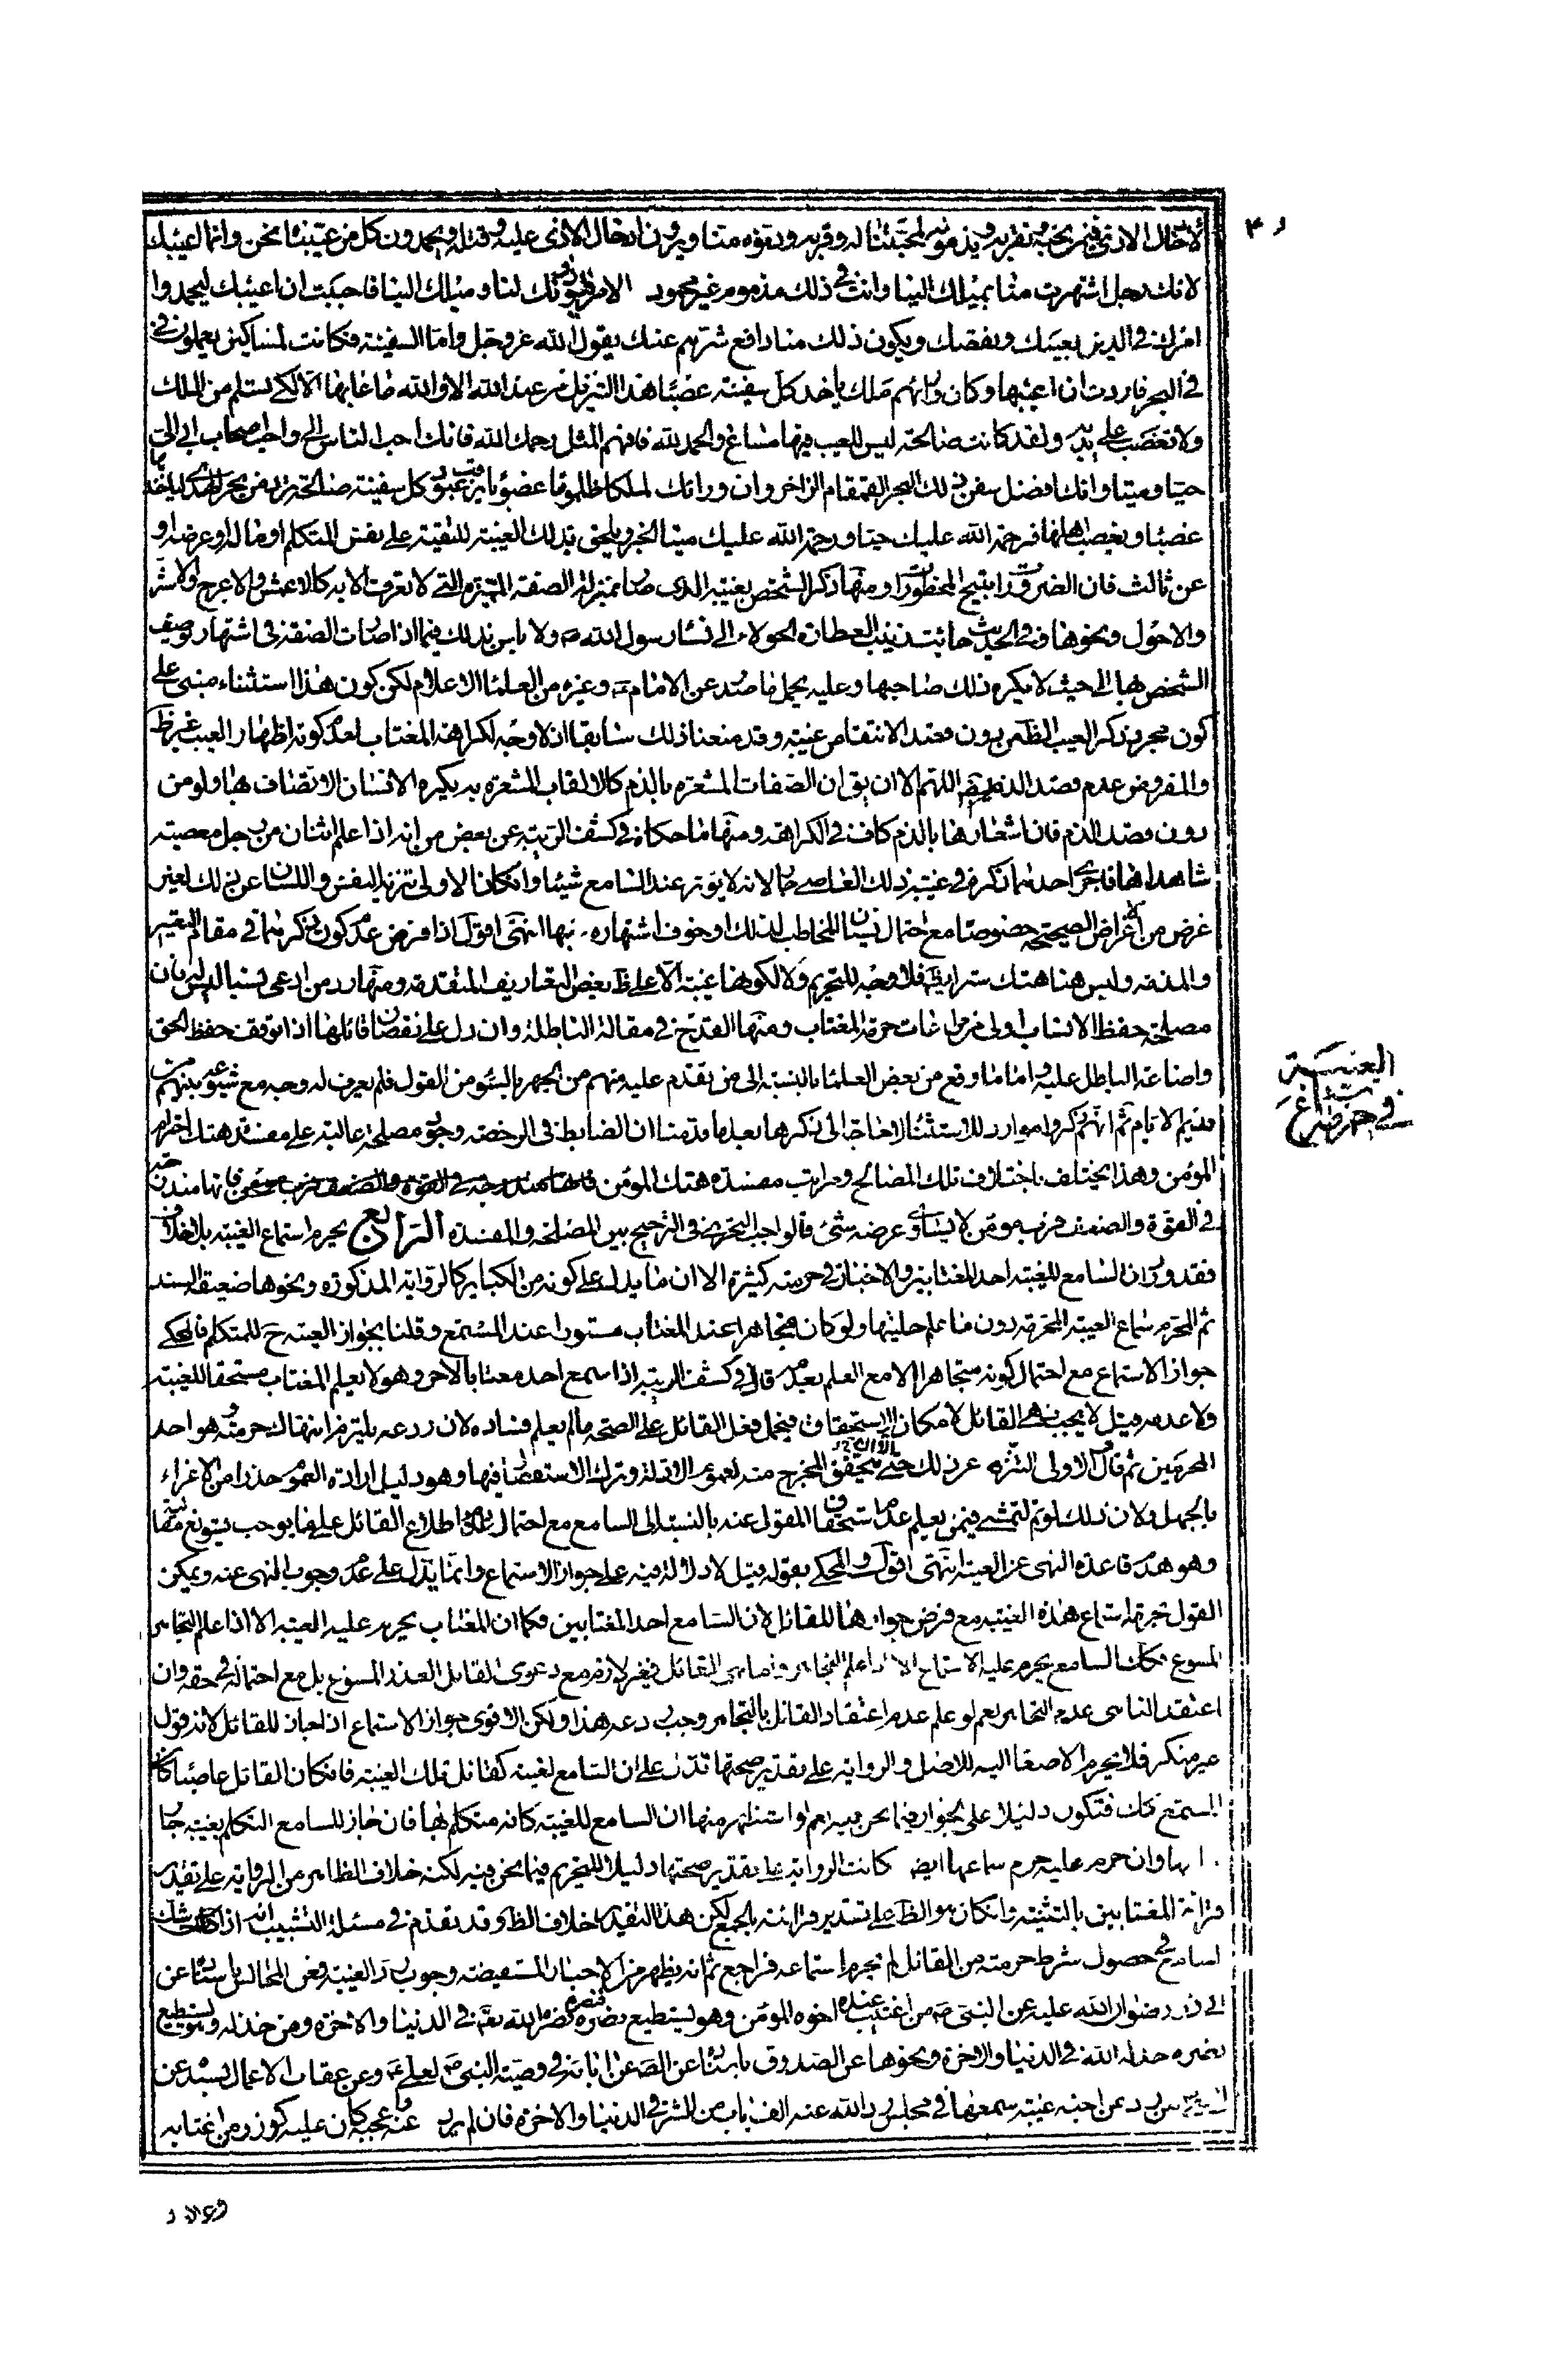 لادخال الاذى فيمن نحبه ونقربه ويذمونه لمحبتنا له وقربه ودنوه منا ويرون ادخال الاذى عليه وقتله ويحمدون كل من عيبناه نحن وانما اعيبك
لانك رجل اشتهرت منا بميلك الينا وانت في ذلك مذموم غير محمود الاثر بمودتك لنا وميلك الينا فاحببت ان اعيبك ليحمدوا
امرك في الدين بعيبك ونقصك ويكون ذلك منا دافع شرهم عنك يقول الله عز وجل واما السفينة فكانت لمساكين يعملون
في البحر فاردت ان اعيبها وكان ورائهم ملك ياخذ كل سفينة غصبا هذا التنزيل من عند الله الا والله ما عابها الا لكي تسلم من الملك
ولا تغصب على يديه ولقد كانت صالحة ليس للعيب فيها مساغ والحمد لله فافهم المثل رحمك الله فانك احب الناس الي واحب اصحاب ابي الي
حيا وميتا وانك افضل سفن ذلك البحر القمقام الزاخر وان ورائك لملكا ظلوما غصوبا يرقب عبور كل سفينة صالحة ترد من بحر الهدى لياخذها
غصبا ويغصب اهلها فرحمة الله عليك حيا ورحمة الله عليك ميتا الخبر ويلحق بذلك الغيبة للتقية على نفس المتكلم او ماله او عرضه او
عن ثالث فان الضرورات تبيح المحظورات ومنها ذكر الشخص بعيبه الذي صار بمنزلة الصفة المميزة التي لا يعرف الا به كالاعمش والاعرج والاشتر
والاحول ونحوها ففي الحديث جائت زينب العطارة الحولاء الى نساء رسول الله ص ولا باس بذلك فيما اذا صارت الصفة في اشتهار توصيف
الشخص بها الى حيث لا يكره ذلك صاحبها وعليه يحمل ما صدر عن الامام ع وغيره من العلماء الاعلام لكن كون هذا استثناء مبني على
كون مجرد ذكر العيب الظاهر بدون قصد الانتقاص غيبة وقد منعنا ذلك سابقا اذ لا وجه لكراهة المغتاب لعدم كونه اظهارا لعيب غير ظاهر
والمفروض عدم قصد الذم ايضا اللهم الا ان يق ان الصفات المشعرة بالذم كالالقاب المشعرة به يكره الانسان الاتصاف بها ولو من
دون قصد الذم فان اشعارها بالذم كاف في الكراهة ومنها ما حكاه في كشف الريبة عن بعض من انه اذا علم اثنان من رجل معصية
شاهداها فاجرى احدهما ذكره في غيبة ذلك العاصي جاز لانه لا يؤثر عند السامع شيئا وان كان الاولى تنزيه النفس واللسان عن ذلك لغير
غرض من الاغراض الصحيحة خصوصا مع احتمال نسيان المخاطب لذلك او خوف اشتهاره بها انتهى اقول اذا فرض عدم كون ذكرهما في مقام التعيير
والمذمة وليس هنا هتك ستر ايضا فلا وجه للتحريم ولا لكونها غيبة الا على ظ بعض التعاريف المتقدمة ومنها رد من ادعى نسبا ليس له فان
مصلحة حفظ الانساب اولى من مراعات حرمة المغتاب ومنها القدح في مقالة الباطلة وان دل على نقصان قائلها اذا توقف حفظ الحق
واضاعة الباطل عليه واما ما وقع من بعض العلماء بالنسبة الى من تقدم عليه منهم من الجهر بالسوء من القول فلم يعرف له وجه مع شيوعه بينهم من
قديم الايام ثم انهم ذكروا موارد للاستثناء لا حاجة الى ذكرها بعد ما قدمنا ان الضابط في الرخصة وجود مصلحة غالبة على مفسدة هتك احترام
المؤمن وهذا يختلف باختلاف تلك المصالح ومراتب مفسدة هتك المؤمن فانها مندرجة
في القوة والضعف فرب مؤمن لا يساوي عرضه شئ فالواجب التحري في الترجيح بين المصلحة والمفسدة الرابع يحرم استماع الغيبة بلا خلاف
فقد ورد ان السامع للغيبة احد المغتابين والاخبار في حرمته كثيرة الا ان ما يدل على كونه من الكبائر كالرواية المذكورة ونحوها ضعيفة السند
ثم المحرم سماع الغيبة المحرمة دون ما علم حليتها ولو كان متجاهرا عند المغتاب مستورا عند المستمع وقلنا بجواز الغيبة ح للمتكلم فالمحكي
جواز الاستماع مع احتمال كونه متجاهرا الا مع العلم بعدمه قال في كشف الريبة اذا سمع احد مغتابا لاخر وهو لا يعلم المغتاب مستحقا للغيبة
ولا عدمه قيل لا يجب نهي القائل لامكان الاستحقاق فيحمل فعل القائل على الصحة ما لم يعلم فساده لان ردعه يستلزم انتهاك حرمته وهو احد
المحرمين ثم قال والاولى التنزه عن ذلك حتى يتحقق المخرج منه لعموم الادلة وترك الاستفصال فيها وهو دليل ارادة العموم حذرا من الاغراء
بالجهل ولان ذلك لو تم لتمشى فيمن يعلم عدم استحقاق المقول عنه بالنسبة الى السامع مع احتمال اطلاع القائل على ما يوجب تسويغ مقالته
وهو هدم قاعدة النهي عن الغيبة انتهى اقول والمحكي بقوله قيل لا دلالة فيه على جواز الاستماع وانما يدل على عدم وجوب النهي عنه ويمكن
القول بحرمة استماع هذه الغيبة مع فرض جوازها للقائل لان السامع احد المغتابين فكما ان المغتاب يحرم عليه الغيبة الا اذا علم التجاهر
المسوغ فكذلك السامع يحرم عليه الاستماع الا اذا علم التجاهر واما نهي القائل فغير لازم مع دعوى القائل العذر المسوغ بل مع احتماله في حقه وان
اعتقد الناهي عدم التجاهر نعم لو علم عدم اعتقاد القائل بالتجاهر وجب ردعه هذا ولكن الاقوى جواز الاستماع اذا جاز للقائل لانه قول
غير منكر فلا يحرم الاصغاء اليه للاصل والرواية على تقدير صحتها تدل على ان السامع لغيبة كقائل تلك الغيبة فان كان القائل عاصيا كان
المستمع كذلك فتكون دليلا على الجواز فيما نحن فيه نعم لو استظهر منها ان السامع للغيبة كانه متكلم بها فان جاز للسامع التكلم بغيبة جاز
سماعها وان حرم عليه حرم سماعها ايضا كانت الرواية على تقدير صحتها دليلا للتحريم فيما نحن فيه لكنه خلاف الظاهر من الرواية على تقدير
قرائة المغتابين بالتثنية وان كان هو الظ على تقدير قرائته بالجمع لكن هذا التقدير خلاف الظ وقد تقدم في مسئلة التشبيب انه اذا كان شك
السامع في حصول شرط حرمته من القائل لم يحرم استماعه فراجع ثم انه يظهر من الاخبار المستفيضة وجوب رد الغيبة فعن المجالس باسناده عن
ابي ذر رضوان الله عليه عن النبي ص من اغتيب عنده اخوه المؤمن وهو يستطيع نصره فنصره نصره الله تع في الدنيا والاخرة ومن خذله وهو يستطيع
نصره خذله الله في الدنيا والاخرة ونحوها عن الصدوق باسناده عن الصادق عن ابائه في وصية النبي ص لعلي ع وعن عقاب الاعمال بسنده عن
النبي ص من رد عن اخيه غيبة سمعها في مجلس رد الله عنه الف باب من الشر في الدنيا والاخرة فان لم يرد عنه واعجبه كان عليه كوزر من اغتابه